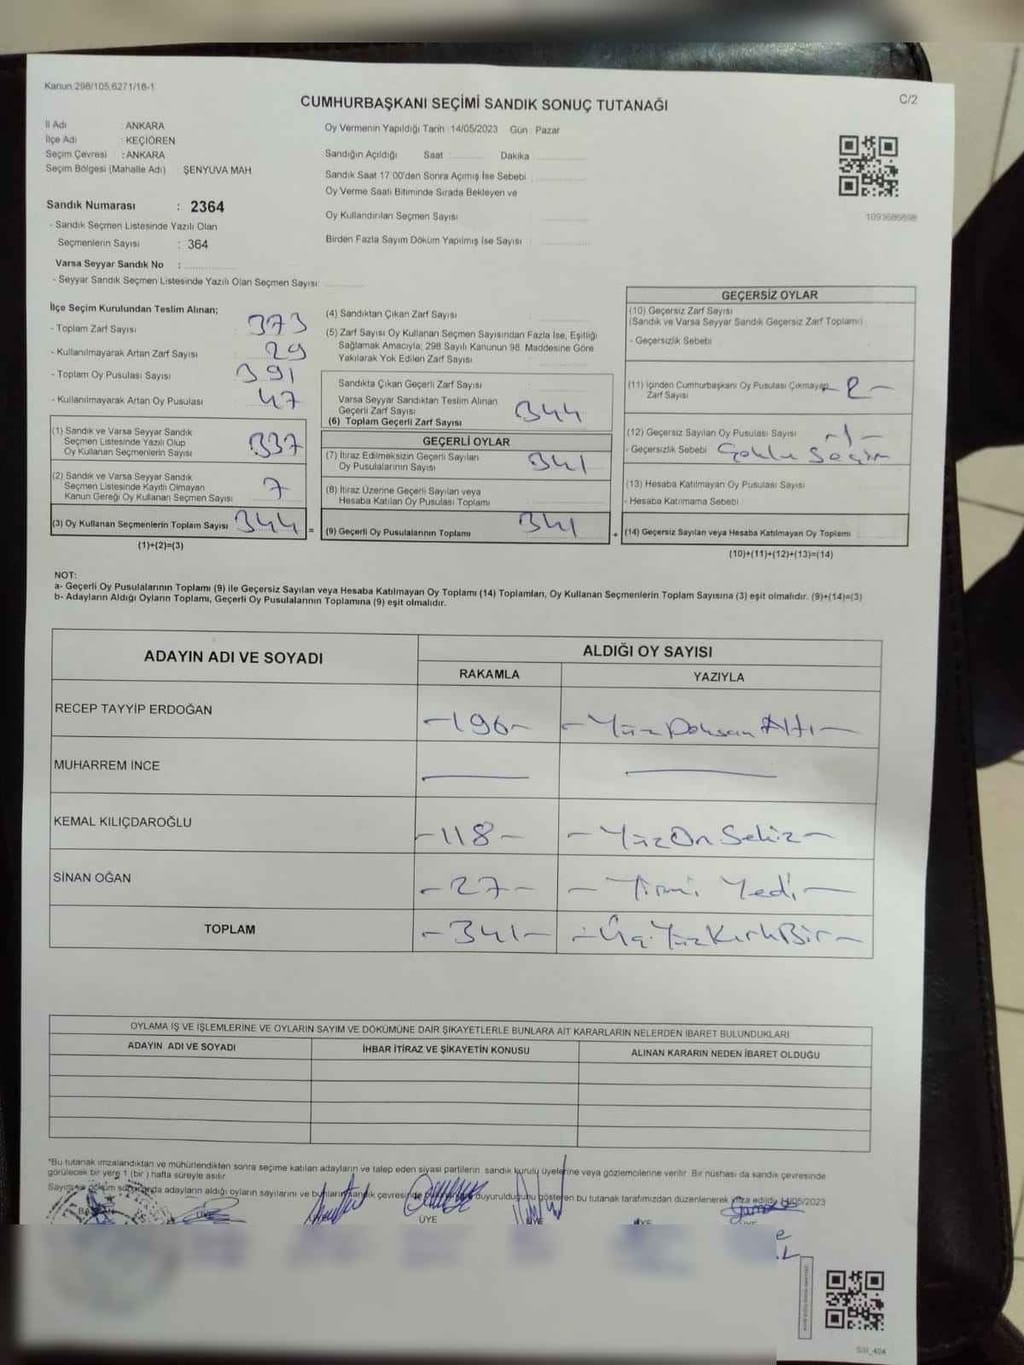 Kanun 298/105,6271/16-1
CUMHURBAŞKANI SEÇİMİ SANDIK SONUÇ TUTANAĞI
C/2
İl Adı : ANKARA
İlçe Adı : KEÇİÖREN
Seçim Çevresi : ANKARA
Seçim Bölgesi (Mahalle Adı) ŞENYUVA MAH
Sandık Numarası : 2364
- Sandık Seçmen Listesinde Yazılı Olan
Seçmenlerin Sayısı : 364
Varsa Seyyar Sandık No :
- Seyyar Sandık Seçmen Listesinde Yazılı Olan Seçmen Sayısı:
Oy Vermenin Yapıldığı Tarih 14/05/2023 Gün : Pazar
Sandığın Açıldığı Saat Dakika
Sandık Saat 17.00'den Sonra Açılmış İse Sebebi
Oy Verme Saati Bitiminde Sırada Bekleyen ve
Oy Kullandırılan Seçmen Sayısı
Birden Fazla Sayım Döküm Yapılmış İse Sayısı
1093686898
İlçe Seçim Kurulundan Teslim Alınan;
- Toplam Zarf Sayısı 373
- Kullanılmayarak Artan Zarf Sayısı 29
- Toplam Oy Pusulası Sayısı 391
- Kullanılmayarak Artan Oy Pusulası 47
(1) Sandık ve Varsa Seyyar Sandık
Seçmen Listesinde Yazılı Olup
Oy Kullanan Seçmenlerin Sayısı 337
(2) Sandık ve Varsa Seyyar Sandık
Seçmen Listesinde Kayıtlı Olmayan
Kanun Gereği Oy Kullanan Seçmen Sayısı 7
(3) Oy Kullanan Seçmenlerin Toplam Sayısı 344 =
(1)+(2)=(3)
(4) Sandıktan Çıkan Zarf Sayısı
(5) Zarf Sayısı Oy Kullanan Seçmen Sayısından Fazla İse, Eşitliği
Sağlamak Amacıyla; 298 Sayılı Kanunun 98. Maddesine Göre
Yakılarak Yok Edilen Zarf Sayısı
Sandıkta Çıkan Geçerli Zarf Sayısı
Varsa Seyyar Sandıktan Teslim Alınan
Geçerli Zarf Sayısı
(6) Toplam Geçerli Zarf Sayısı 344
GEÇERLİ OYLAR
(7) İtiraz Edilmeksizin Geçerli Sayılan
Oy Pusulalarının Sayısı 341
(8) İtiraz Üzerine Geçerli Sayılan veya
Hesaba Katılan Oy Pusulası Toplamı
(9) Geçerli Oy Pusulalarının Toplamı 341 +
GEÇERSİZ OYLAR
(10) Geçersiz Zarf Sayısı
(Sandık ve Varsa Seyyar Sandık Geçersiz Zarf Toplamı)
- Geçersizlik Sebebi
(11) İçinden Cumhurbaşkanı Oy Pusulası Çıkmayan
Zarf Sayısı - 2 -
(12) Geçersiz Sayılan Oy Pusulası Sayısı - 1 -
- Geçersizlik Sebebi Çoklu Seçim
(13) Hesaba Katılmayan Oy Pusulası Sayısı
- Hesaba Katılmama Sebebi
(14) Geçersiz Sayılan veya Hesaba Katılmayan Oy Toplamı
(10)+(11)+(12)+(13)=(14)
NOT:
a- Geçerli Oy Pusulalarının Toplamı (9) ile Geçersiz Sayılan veya Hesaba Katılmayan Oy Toplamı (14) Toplamları, Oy Kullanan Seçmenlerin Toplam Sayısına (3) eşit olmalıdır. (9)+(14)=(3)
b- Adayların Aldığı Oyların Toplamı, Geçerli Oy Pusulalarının Toplamına (9) eşit olmalıdır.
ADAYIN ADI VE SOYADI
ALDIĞI OY SAYISI
RAKAMLA YAZIYLA
RECEP TAYYİP ERDOĞAN -196- - Yüz Doksan Altı -
MUHARREM İNCE
KEMAL KILIÇDAROĞLU -118- - Yüz On Sekiz -
SİNAN OĞAN -27- - Yirmi Yedi -
TOPLAM -341- - Üç Yüz Kırk Bir -
OYLAMA İŞ VE İŞLEMLERİNE VE OYLARIN SAYIM VE DÖKÜMÜNE DAİR ŞİKAYETLERLE BUNLARA AİT KARARLARIN NELERDEN İBARET BULUNDUKLARI
ADAYIN ADI VE SOYADI İHBAR İTİRAZ VE ŞİKAYETİN KONUSU ALINAN KARARIN NEDEN İBARET OLDUĞU
*Bu tutanak imzalandıktan ve mühürlendikten sonra seçime katılan adayların ve talep eden siyasi partilerin sandık kurulu üyelerine veya gözlemcilerine verilir. Bir nüshası da sandık çevresinde
görülecek bir yere 1 (bir) hafta süreyle asılır.
adayların aldığı oyların sayılarını ve duyurulduğunu gösteren bu tutanak tarafımızdan düzenlenerek imza edildi. 14/05/2023
ÜYE